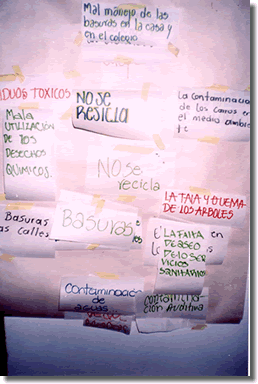 Mal manejo de las
basuras en la casa y
en el colegio
DUOS TOXICOS
Mala
UTILIZACIÓN
DE LOS
DESECHOS
QUIMICOS.
NO SE
RESICLA
La contaminacio
de los carros en
el medio ambiente
No se
recicla
LA TALA Y QUEMA
DE LOS ARBOLES
Basuras
as calles
Basuras
en
LA FALTA
DE ASEO
DE LO SER
VICIOS
SANITARIOS
Contaminación
de
aguas
contamina
ción Auditiva